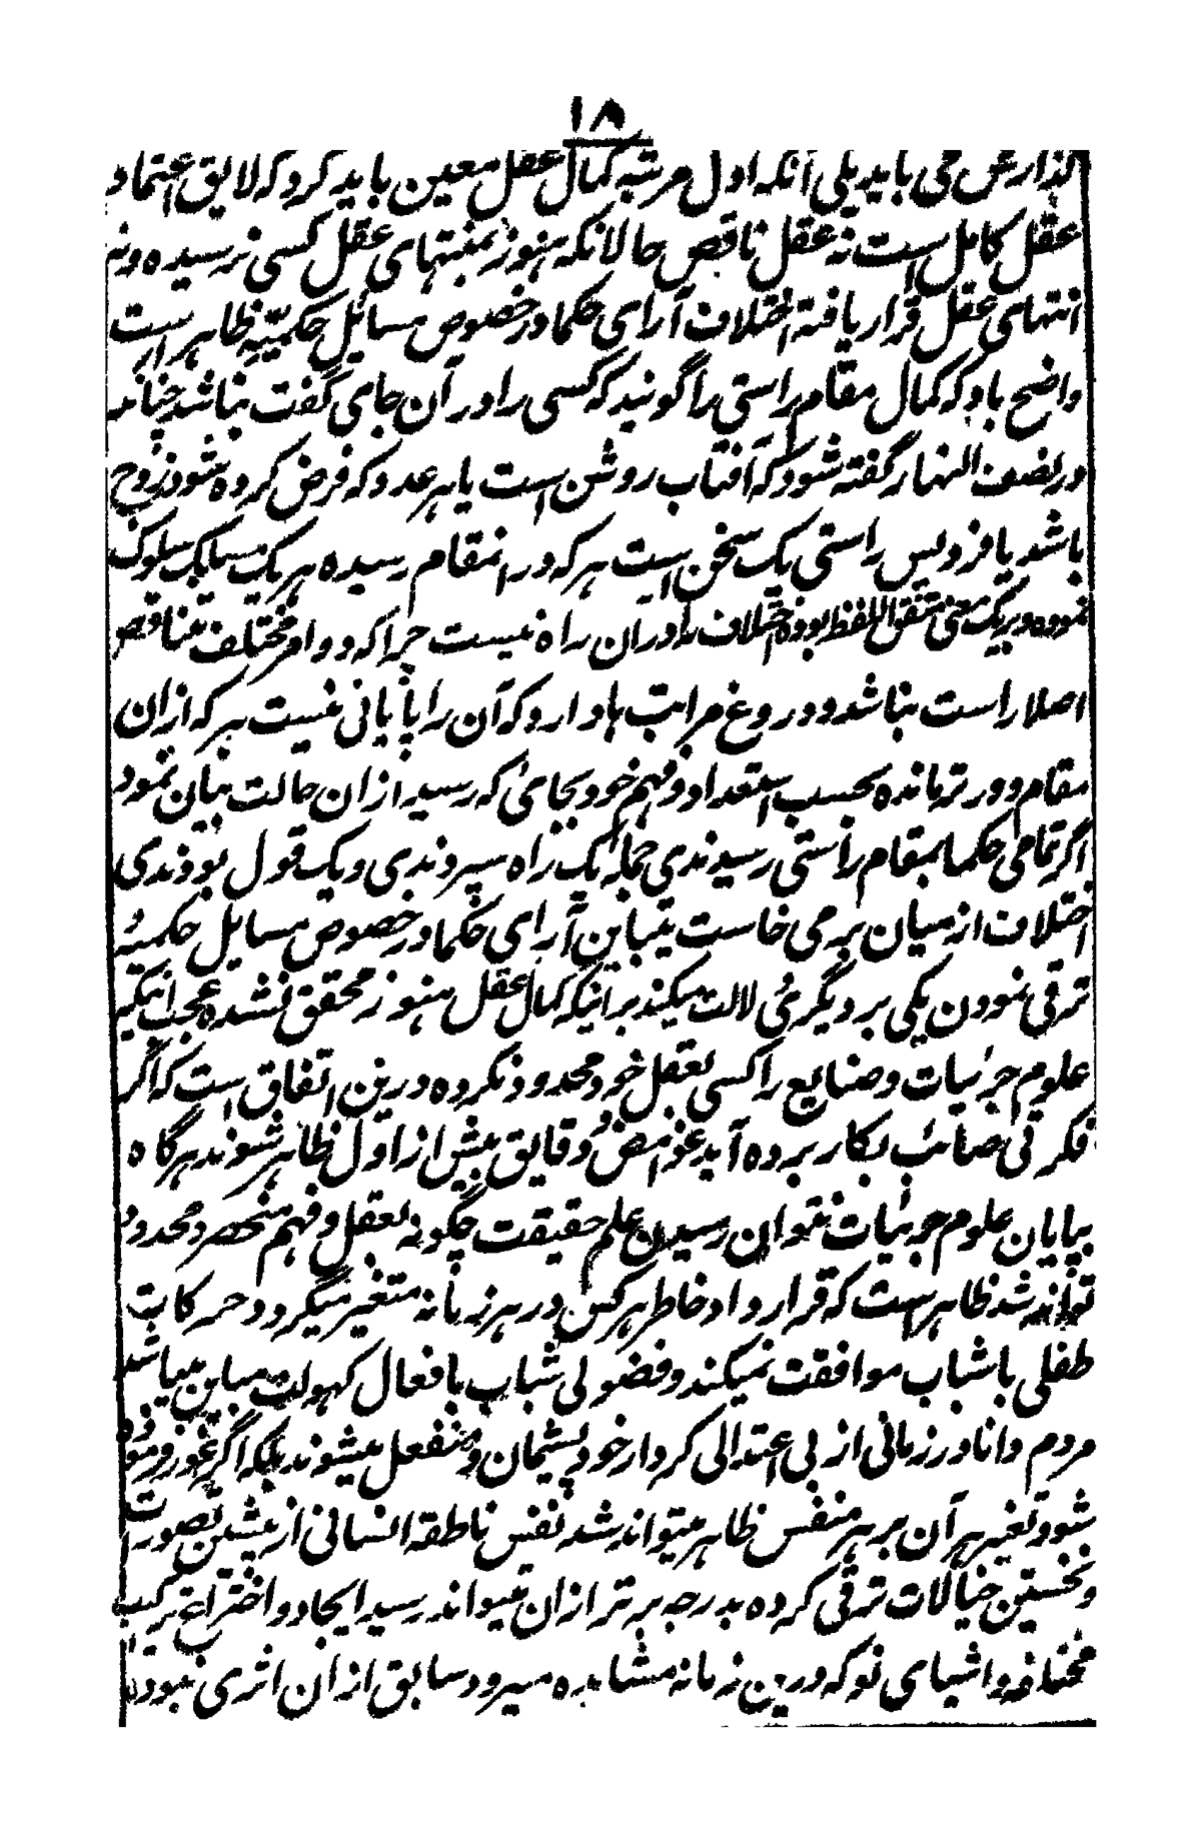 ۱۸
گذارش می باید بلی آنکه اول مرتبه کمال عقل معین باید کرد که لایق اعتماد
عقل کامل است نه عقل ناقص حالانکه هنوز بمنتهای عقل کسی نرسیده ونه
انتهای عقل قرار یافته اختلاف آرای حکما در خصوص مسائل حکمیّه ظاهر است
واضح باد که کمال مقام راستی را گویند که کسی را در آن جای گفت نباشد چنانچه
در نصف النهار گفته شود که آفتاب روشن است یا هر عدد که فرض کرده شود زوج
باشد یا فرد پس راستی یک سخن است هر که در انمقام رسیده هر یک مسلک سلوک
نموده و بریک معنی متفق اللفظ بوده اختلاف را دران راه نیست چرا که دو امر مختلف متناقض
اصلا راست نباشد و دروغ مراتب ها دارد که آن را پایانی نیست هر که ازان
مقام دور تر مانده بحسب استعداد و فهم خود بجائی که رسید ازان حالت بیان نمود
اگر تمامی حکما بمقام راستی رسیدندی جمله یک راه سپردندی و یک قول بودندی
اختلاف از میان برمی خاست تباین آرای حکما در خصوص مسایل حکمیهٔ
ترقی نمودن یکی بر دیگری دلالت میکند بر اینکه کمال عقل هنوز محقق نشده عجب اینکه
علوم جزئیات و صنایع را کسی بعقل خود محدود نکرده درین اتفاق است که اگر
فکر تی صائب بکار برده آید غوامض و دقایق بیش از اول ظاهر شوند هرگاه
بپایان علوم جزئیات نتوان رسیدن علم حقیقت چگونه بعقل و فهم منحصر و محدود
تواند شد ظاهر است که قرار داد خاطر هر کس در هر زمانه متغیر میگردد حرکات
طفلی با شباب موافقت نمیکند و فضولی شباب با فعال کهولت مباین میباشد
مردم دانا در زمانی از بی اعتدالی کردار خود پشیمان و منفعل میشوند بلکه اگر غور نموده
شود تغیر آن بر هر منفس ظاهر میتواند شد نفس ناطقهٔ انسانی از پیشین تصورات
و نخستین خیالات ترقی کرده بدرجه برتر ازان میتواند رسید ایجاد و اختراع ترکیب
مختلفه و اشیای نو که درین زمانه مشاهده میرود سابق ازان اثری نبود